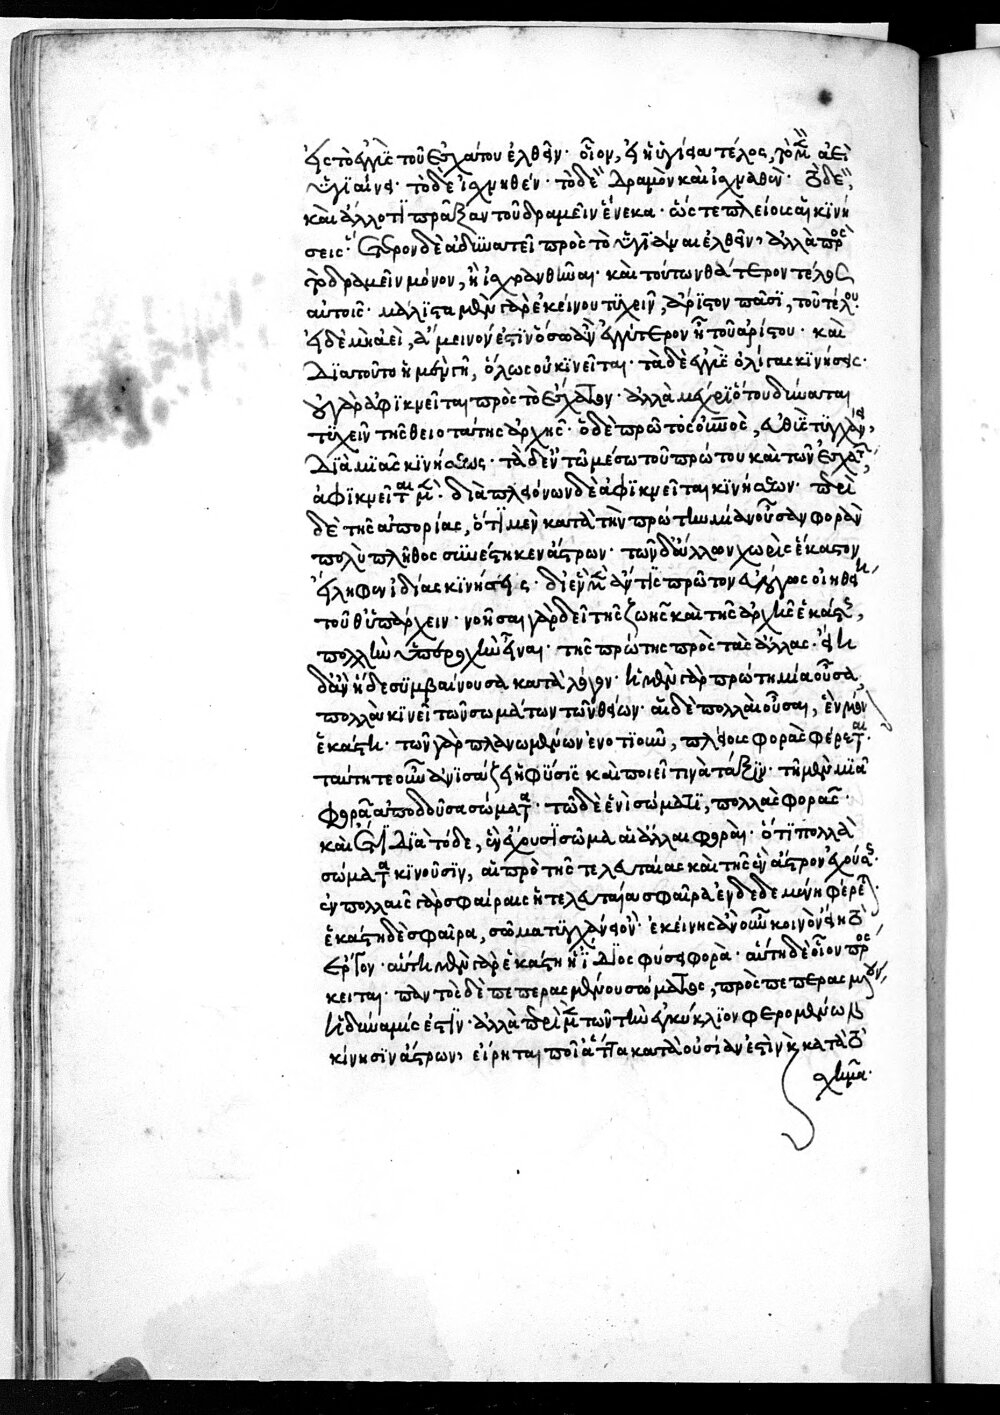 εἰς τὸ ἐγγὺς τοῦ ἐσχάτου ἐλθεῖν· οἷον, εἰ ἡ ὑγίεια τέλος, τὸ μὲν ἀεὶ
ὑγιαίνει· τὸ δὲ ἰσχνηθέν· τὸ δὲ δραμὸν καὶ ἰσχνανθέν· τὸ δὲ,
καὶ ἄλλο τι πρᾶξαν τοῦ δραμεῖν ἕνεκα· ὥστε πλείους αἱ κινή
σεις· ἕτερον δὲ ἀδυνατεῖ πρὸς τὸ ὑγιᾶναι ἐλθεῖν, ἀλλὰ πρὸς
τὸ δραμεῖν μόνον, ἢ ἰσχνανθῆναι· καὶ τούτων θάτερον τέλος
αὐτοῖς· μάλιστα μὲν γὰρ ἐκείνου τυχεῖν, ἄριστον πᾶσι, τοῦ τέλους·
εἰ δὲ μὴ ἀεὶ, ἄμεινόν ἐστιν ὅσῳ ἂν ἐγγύτερον ἦ τοῦ ἀρίστου· καὶ
διὰ τοῦτο ἡ μὲν γῆ, ὅλως οὐ κινεῖται· τὰ δὲ ἐγγὺς ὀλίγας κινήσεις·
οὐ γὰρ ἀφικνεῖται πρὸς τὸ ἔσχατον· ἀλλὰ μέχρι ὅτου δύναται
τυχεῖν τῆς θειοτάτης ἀρχῆς· ὁ δὲ πρῶτος οὐρανὸς, εὐθὺς τυγχάνει,
διὰ μιᾶς κινήσεως· τὰ δ' ἐν τῷ μέσῳ τοῦ πρώτου καὶ τῶν ἐσχάτων,
ἀφικνεῖται μέν· διὰ πλειόνων δὲ ἀφικνεῖται κινήσεων· περὶ
δὲ τῆς ἀπορίας, ὅτι μὲν κατὰ τὴν πρώτην μίαν οὖσαν φορὰν
πολὺ πλῆθος συνέστηκεν ἄστρων· τῶν δ' ἄλλων χωρὶς ἕκαστον
εἴληφεν ἰδίας κινήσεις· δι' ἓν μὲν ἄν τις πρῶτον εὐλόγως οἰηθείη
τοῦθ' ὑπάρχειν· νοῆσαι γὰρ δεῖ τῆς ζωῆς καὶ τῆς ἀρχῆς ἑκάστης,
πολλὴν ὑπεροχὴν εἶναι· τῆς πρώτης πρὸς τὰς ἄλλας· εἴη
δ' ἂν ἥδε συμβαίνουσα κατὰ λόγον· ἡ μὲν γὰρ πρώτη μία οὖσα,
πολλὰ κινεῖ τῶν σωμάτων τῶν θείων· αἱ δὲ πολλαὶ οὖσαι, ἓν μόνον
ἑκάστη· τῶν γὰρ πλανωμένων ἓν ὁτιοῦν, πλείους φορὰς φέρεται·
ταύτῃ τε οὖν ἀνισάζει ἡ φύσις καὶ ποιεῖ τινὰ τάξιν· τῇ μὲν μιᾷ
φορᾷ ἀποδοῦσα σώματα· τῷ δὲ ἑνὶ σώματι, πολλὰς φοράς·
καὶ ἔτι διὰ τόδε, ἓν ἔχουσι σῶμα αἱ ἄλλαι φοραὶ· ὅτι πολλὰ
σώματα κινοῦσιν, αἱ πρὸ τῆς τελευταίας καὶ τῆς ἓν ἄστρον ἐχούσης·
ἐν πολλαῖς γὰρ σφαίραις ἡ τελευταία σφαῖρα ἐνδεδεμένη φέρεται·
ἑκάστη δὲ σφαῖρα, σῶμα τυγχάνει ὄν· ἐκείνης ἂν οὖν κοινὸν εἴη τὸ
ἔργον· αὕτη μὲν γὰρ ἑκάστῃ ἡ ἴδιος φύσει φορὰ· αὕτη δὲ οἷον πρόσ
κειται· παντὸς δὲ πεπερασμένου σώματος, πρὸς πεπερασμένον,
ἡ δύναμίς ἐστιν· ἀλλὰ περὶ μὲν τῶν τὴν ἐγκύκλιον φερομένων
κίνησιν ἄστρων, εἴρηται ποῖά ἄττα κατὰ οὐσίαν ἐστὶν κ(αὶ) κατὰ τὸ
σχῆμα·